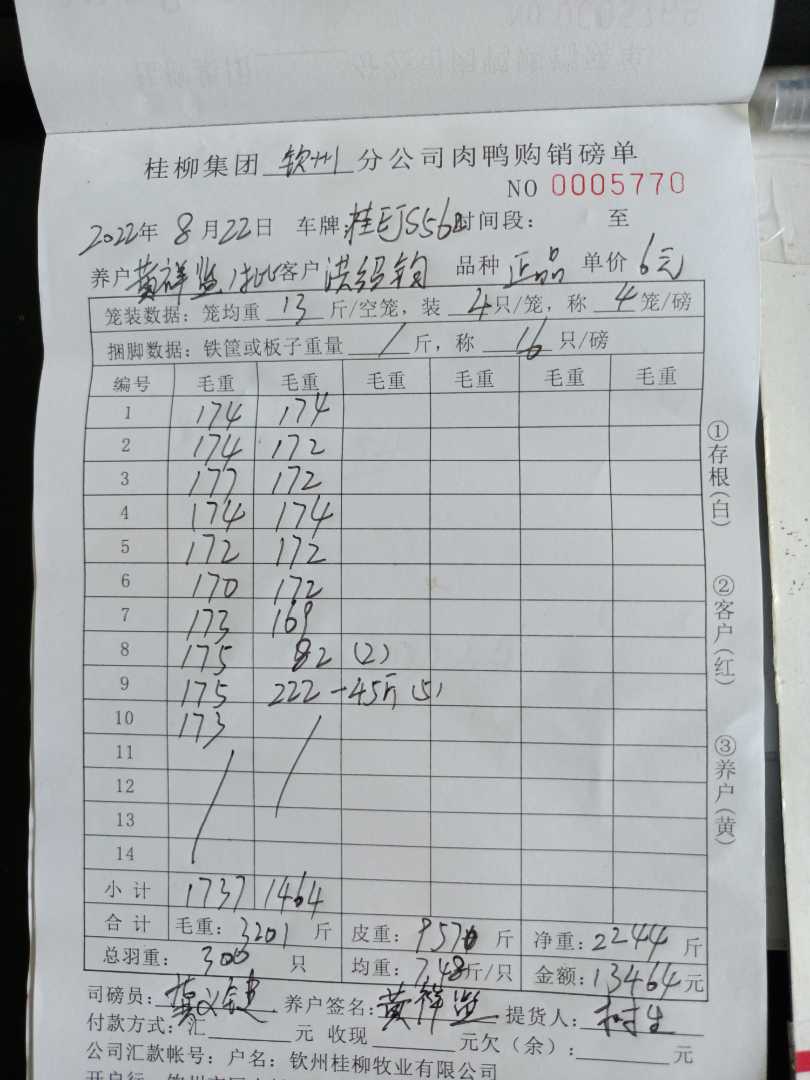 桂柳集团 钦州 分公司肉鸭购销磅单
NO 0005770
2022年 8月22日 车牌:桂EJS562 时间段: 至
养户 黄祥监 1批 客户 洪绍钧 品种 正品 单价 6元
笼装数据：笼均重 13 斤/空笼，装 4只/笼，称 4 笼/磅
捆脚数据：铁筐或板子重量 / 斤，称 16 只/磅
编号 毛重 毛重 毛重 毛重 毛重 毛重
1 174 174
2 174 172
3 177 172
4 174 174
5 172 172
6 170 172
7 173 169
8 175 82 (2)
9 175 222 -45斤 (5)
10 173 /
11 /
12
13
14
小计 1737 1464
合计 毛重：3201 斤 皮重：957 斤 净重：2244 斤
总羽重：300 只 均重：7.48斤/只 金额：13464元
司磅员: 养户签名:黄祥监 提货人:
付款方式:汇 元 收现 元欠（余）: 元
公司汇款帐号：户名：钦州桂柳牧业有限公司
开户行
①存根(白)
②客户(红)
③养户(黄)